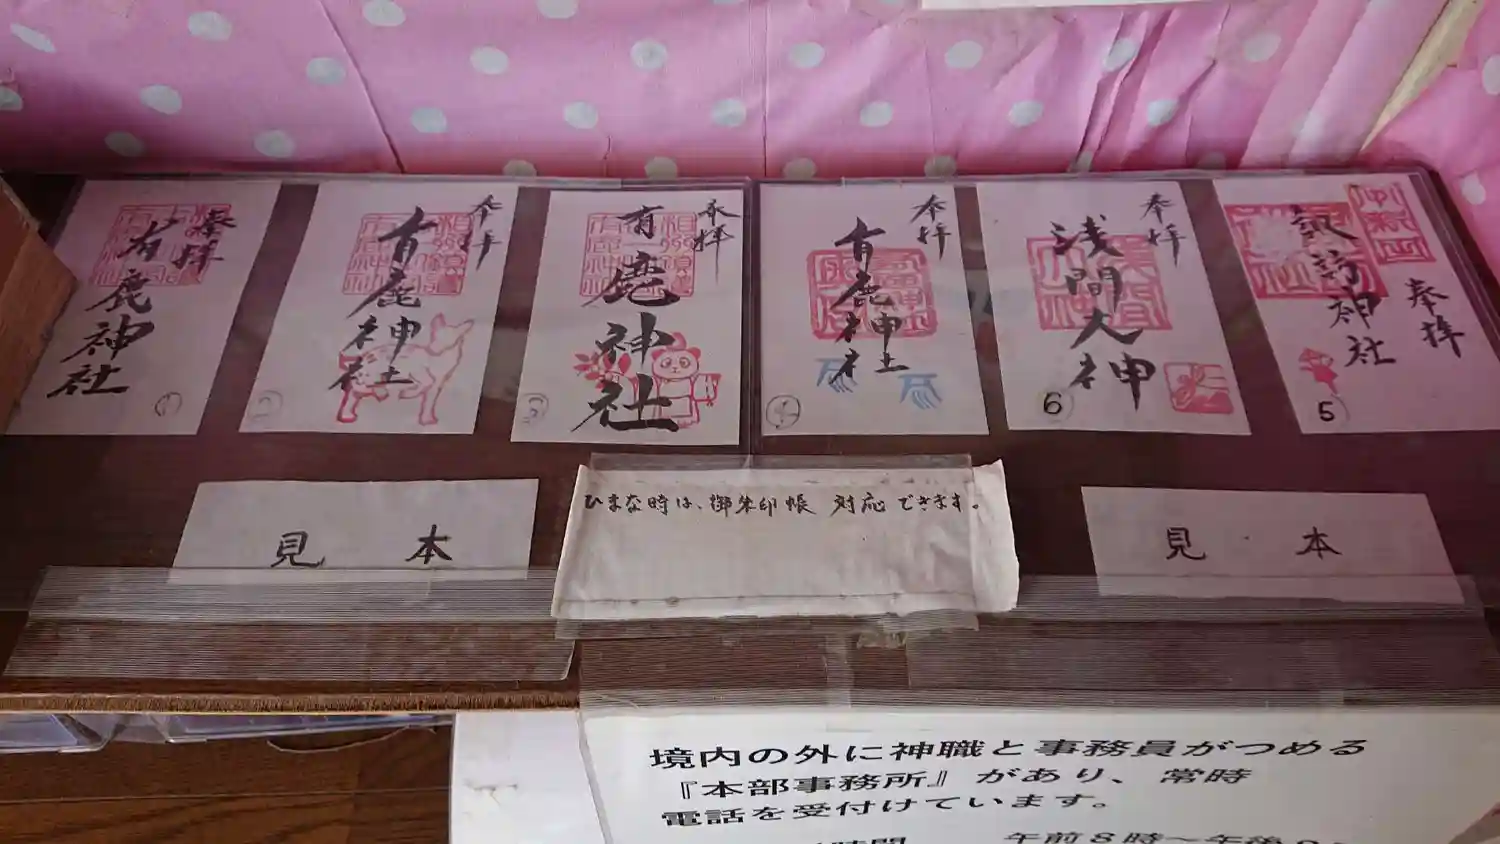 奉拝
有鹿神社
奉拝
有鹿神社
奉拝
有鹿神社
奉拝
有鹿神社
奉拝
浅間大神
6
諏訪神社
奉拝
5
見 本
ひまな時は、御朱印帳 対応できます。
見 本
境内の外に神職と事務員がつめる
『本部事務所』があり、常時
電話を受付けています。
午前8時〜午後